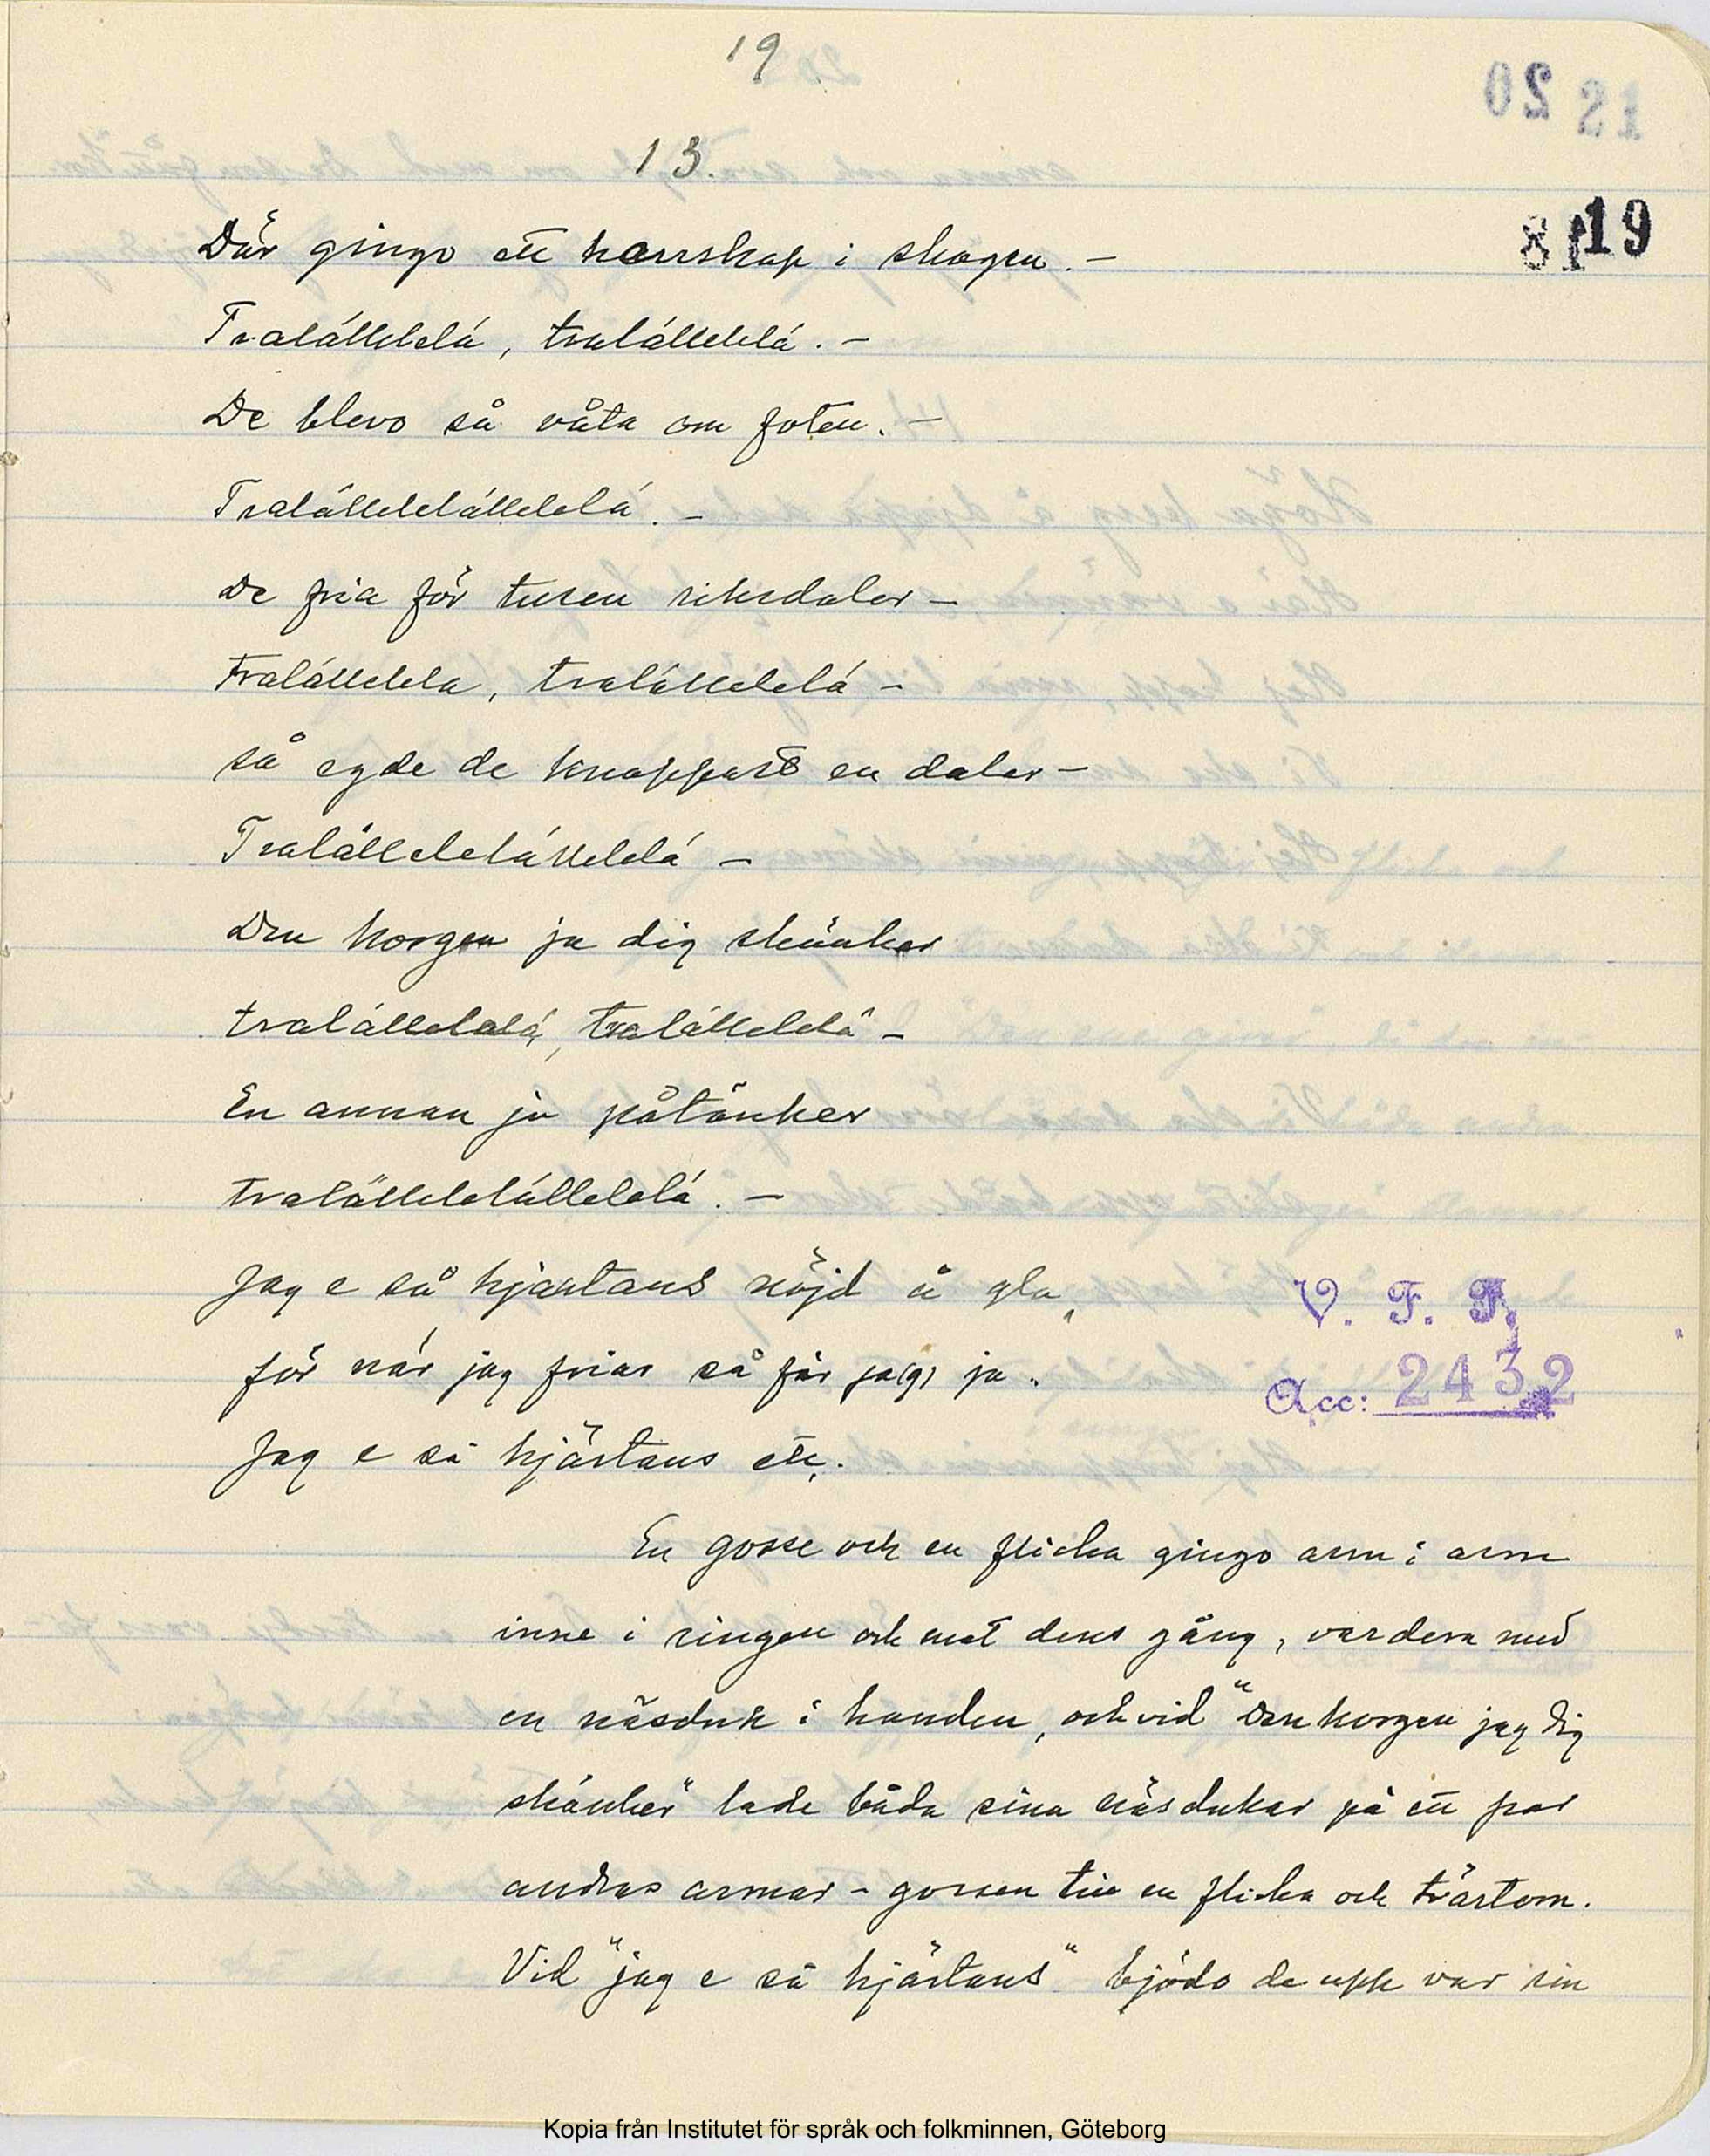 19
13.
Där gingo ett herrskap i skogen. –
Tralállelelá, tralállelelá. –
De blevo så våta om foten. –
Tralállelelállelelá. –
De fria för tusen riksdaler –
Tralállelela, tralállelelá –
så egde de knappast en daler –
Tralállelelállelelá –
Den korgen ja dig skänker
tralállelelá, tralállelelá –
En annan ja påtänker
tralállelelállelelá. –
Jag e så hjärtans nöjd å gla,
för när jag friar så får ja(g) ja.
Jag e så hjärtans etc.
En gosse och en flicka gingo arm i arm
inne i ringen och mot dens gång, vardera med
en näsduk i handen, och vid "Den korgen jag dig
skänker" lade båda sina näsdukar på ett par
andras armar – gossen till en flicka och tvärtom.
Vid "jag e så hjärtans" bjödo de upp var sin
20 21
18 19
V. F. F.
Acc: 2432
Kopia från Institutet för språk och folkminnen, Göteborg